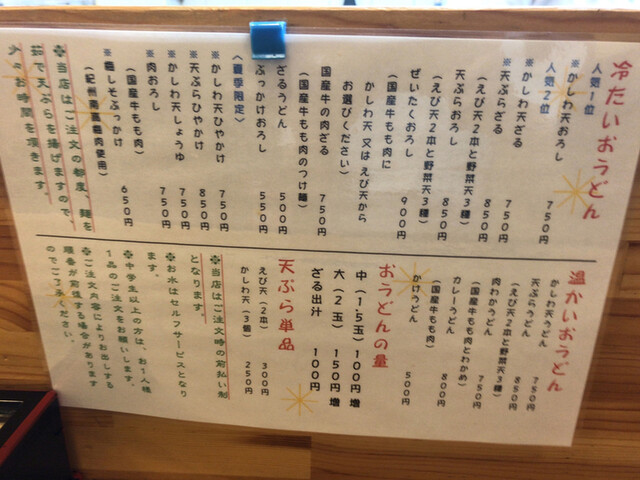 冷たいおうどん
人気1位
※かしわ天おろし 750円
人気2位
※かしわ天ざる 750円
※天ぷらざる 850円
(えび天2本と野菜天3種)
天ぷらおろし 850円
(えび天2本と野菜天3種)
ぜいたくおろし 900円
(国産牛もも肉に
かしわ天 又はえび天から
お選びください)
国産牛の肉ざる 750円
(国産牛もも肉のつけ麺)
ざるうどん 500円
ぶっかけおろし 550円
(夏季限定)
※かしわ天ひやかけ 750円
※天ぷらひやかけ 850円
※かしわ天しょうゆ 750円
※肉おろし 750円
(国産牛もも肉)
※梅しそぶっかけ 650円
(紀州南高梅肉使用)
※当店はご注文の都度、麺を
茹で天ぷらを揚げますので、
少々お時間を頂きます。
温かいおうどん
かしわ天うどん 750円
天ぷらうどん 850円
(えび天2本と野菜天3種)
肉わかうどん 750円
(国産牛もも肉とわかめ)
カレーうどん 800円
(国産牛もも肉)
かけうどん 500円
おうどんの量
中(1.5玉)100円増
大(2玉)150円増
ざる出汁 100円
天ぷら単品
えび天(2本) 300円
かしわ天(3個) 250円
※当店はご注文時の前払い制
となります。
※お水はセルフサービスとなり
ます。
※中学生以上の方は、お1人様
1品のご注文をお願いします。
※ご注文内容によりお出しする
順番が前後する場合があります
のでご了承ください。